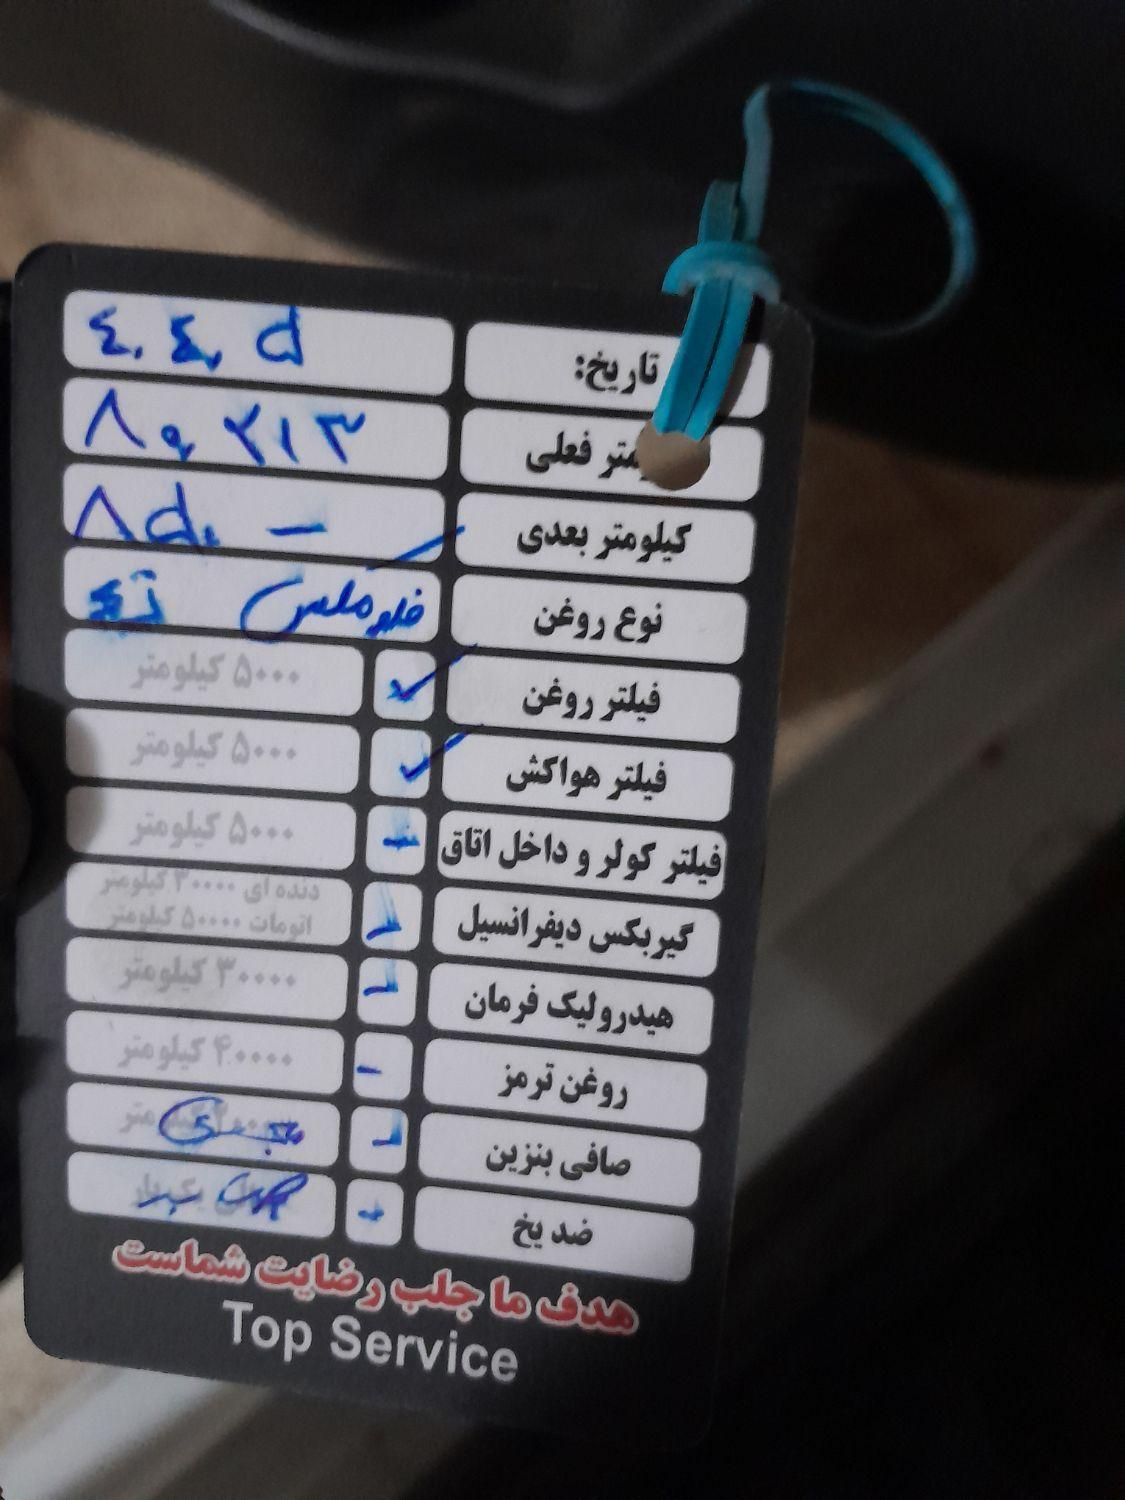 تاریخ: ٤٠٤٫٥
متر فعلی ٨٠٢١٣
کیلومتر بعدی ٨٥٠ -
نوع روغن فلومکس
فیلتر روغن ✓ ۵۰۰۰ کیلومتر
فیلتر هواکش ✓ ۵۰۰۰ کیلومتر
فیلتر کولر و داخل اتاق ۵۰۰۰ کیلومتر
گیربکس دیفرانسیل دنده ای ۳۰۰۰۰ کیلومتر
اتومات ۵۰۰۰۰ کیلومتر
هیدرولیک فرمان ۳۰۰۰۰ کیلومتر
روغن ترمز - ۴۰۰۰۰ کیلومتر
صافی بنزین
ضد یخ
هدف ما جلب رضایت شماست
Top Service